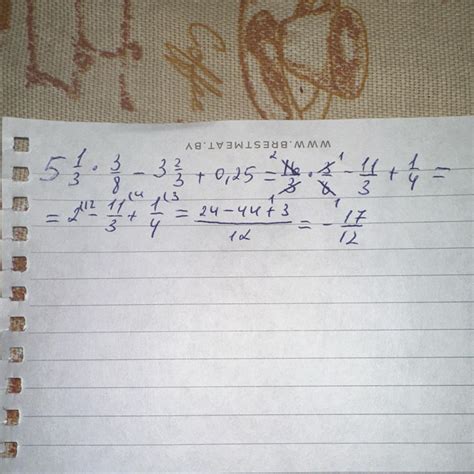 Coffee
WWW.BRESTMEAT.BY
5 1/3 · 3/8 - 3 2/3 + 0,25 = 16/3 · 3/8 - 11/3 + 1/4 =
= 2 - 11/3 + 1/4 = (24 - 44 + 3)/12 = - 17/12